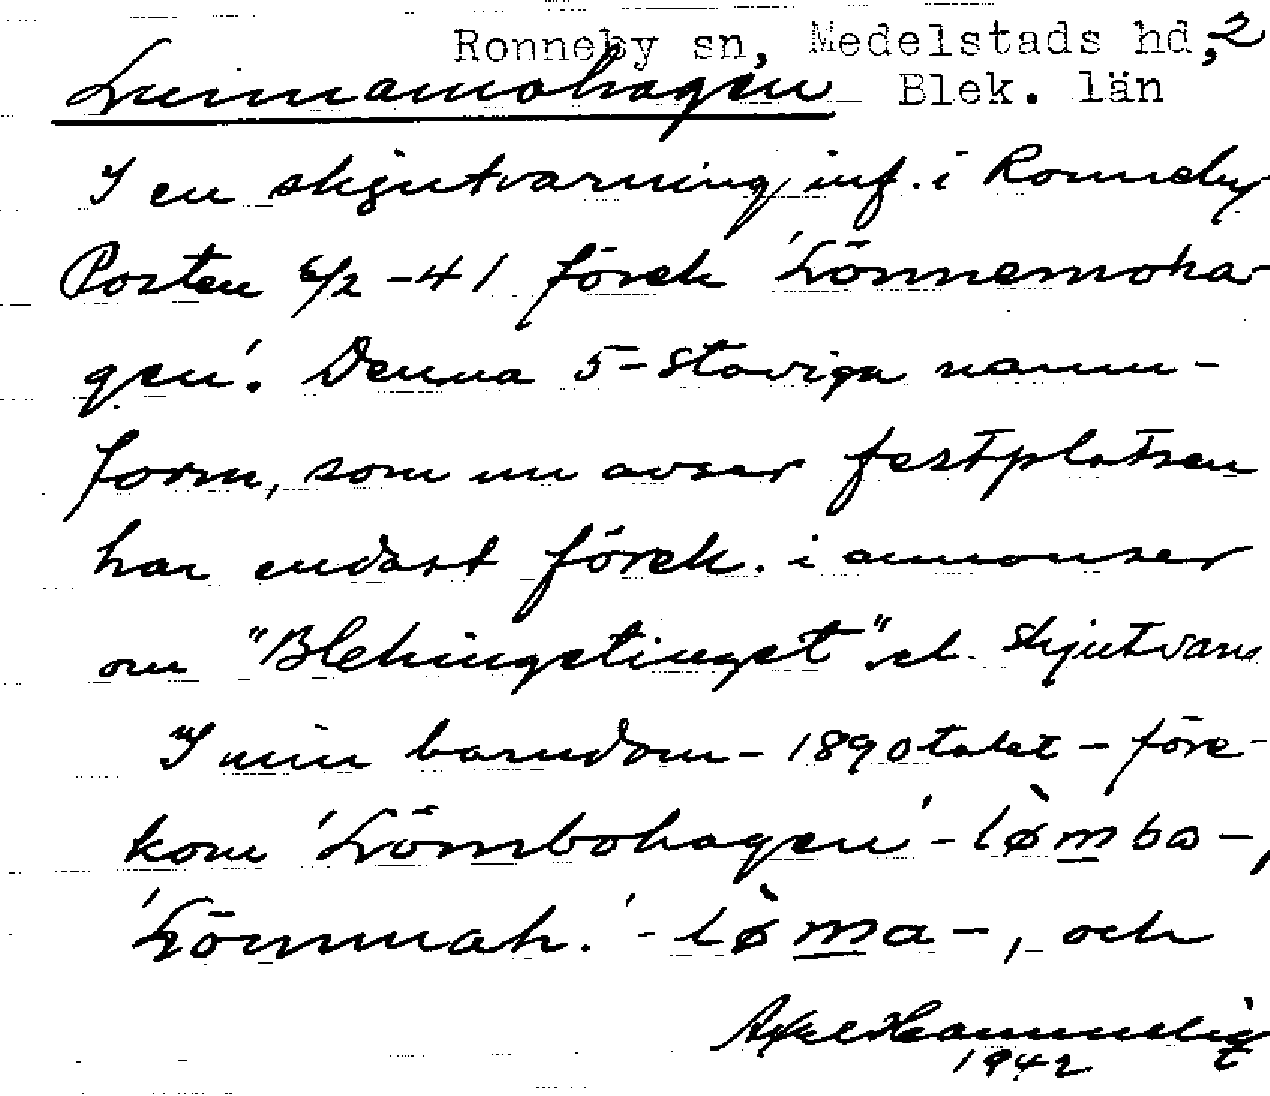 Ronneby sn, Medelstads hd, 2
Blek. län
I en skjutvarning inf. i Ronneby
Posten 6/2 -41 förek 'Lönnemoha-
gen'. Denna 5-staviga namn-
form, som nu avser festplatsen
har endast förek. i annonser
om "Blekingetinget" el. skjutvarn
I min barndom - 1890talet - före-
kom 'Lömbohagen' - lø̀mbo-,
'Lömmah.' - lø̀ma-, och
Axel
1942